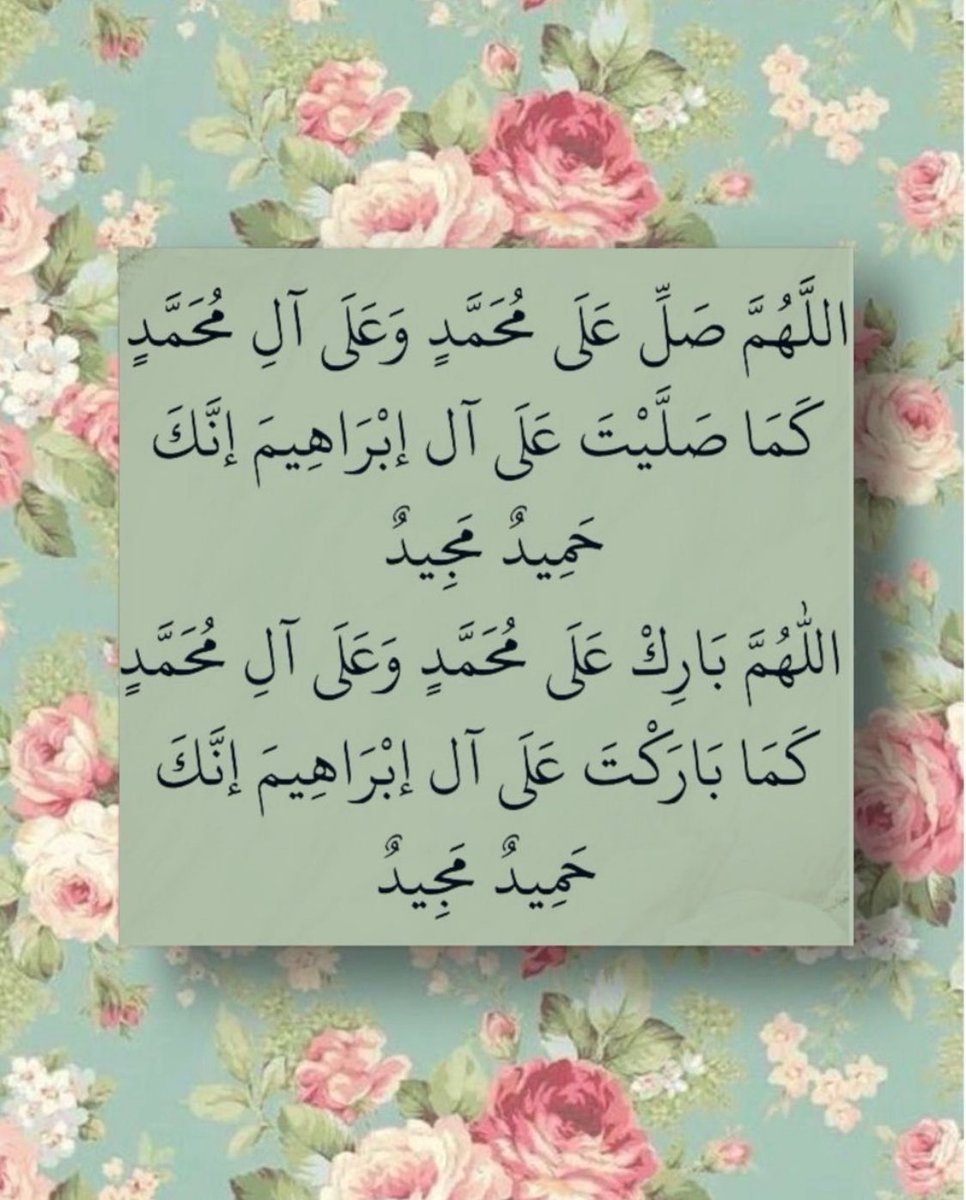 اللَّهُمَّ صَلِّ عَلَى مُحَمَّدٍ وَعَلَى آلِ مُحَمَّدٍ
كَمَا صَلَّيْتَ عَلَى آل إبْرَاهِيمَ إنَّكَ
حَمِيدٌ مَجِيدٌ
اللهُمَّ بَارِكْ عَلَى مُحَمَّدٍ وَعَلَى آلِ مُحَمَّدٍ
كَمَا بَارَكْتَ عَلَى آل إبْرَاهِيمَ إنَّكَ
حَمِيدٌ مَجِيدٌ